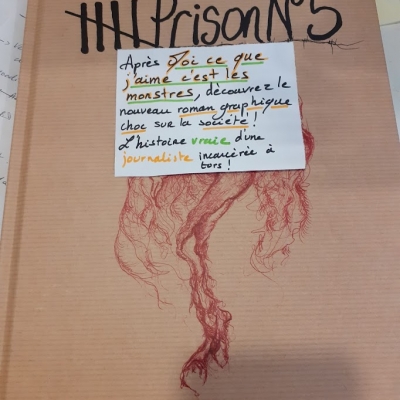 Prison N°5
Après Moi ce que
j'aime c'est les
monstres, découvrez le
nouveau roman graphique
choc sur la société !!
L'histoire vraie d'une
journaliste incarcérée à
tors !